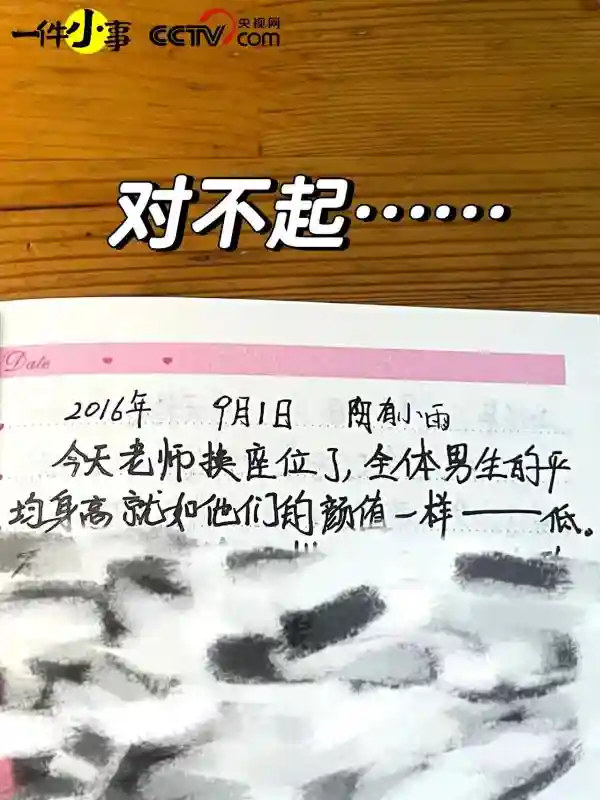 一件小事 CCTV 央视网
com
对不起……
Date
2016年 9月1日 阴有小雨
今天老师换座位了,全体男生的平
均身高就如他们的颜值一样——低。